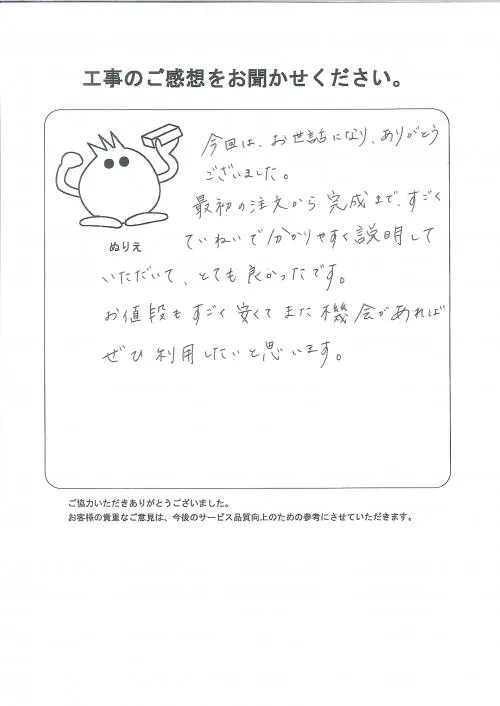 工事のご感想をお聞かせください。
今回は、お世話になり、ありがとう
ございました。
最初の注文から完成まで、すごく
ていねいで分かりやすく説明して
いただいて、とても良かったです。
お値段もすごく安くてまた機会があれば
ぜひ利用したいと思います。
ぬりえ
ご協力いただきありがとうございました。
お客様の貴重なご意見は、今後のサービス品質向上のための参考にさせていただきます。